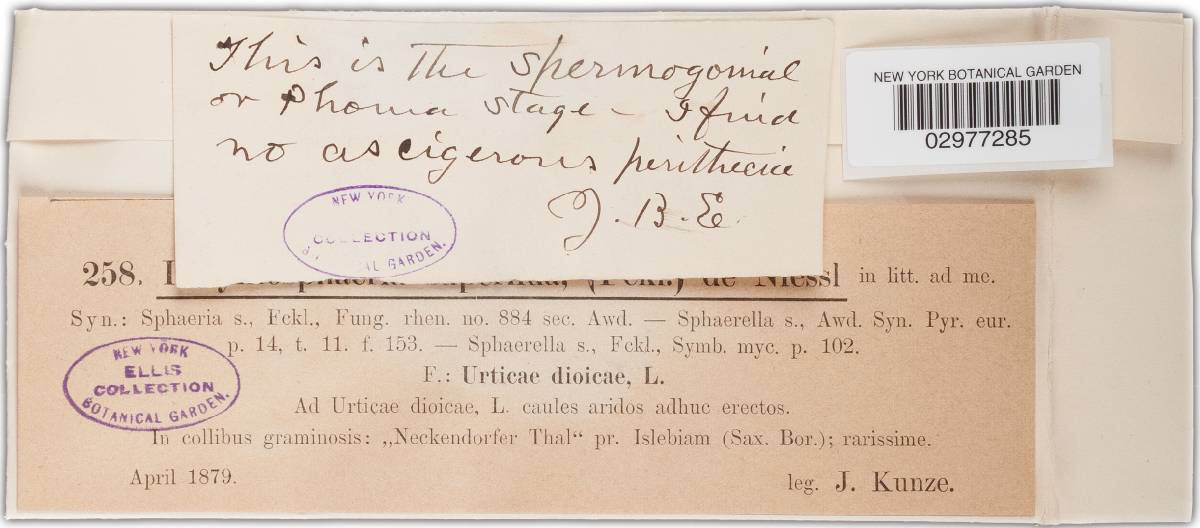 This is the spermogonial
or Phoma stage – I find
no ascigerous perithecia
J. B. E.
NEW YORK BOTANICAL GARDEN
02977285
NEW YORK
COLLECTION
BOTANICAL GARDEN.
258. (Fckl.) de Niessl in litt. ad me.
Syn.: Sphaeria s., Fckl., Fung. rhen. no. 884 sec. Awd. — Sphaerella s., Awd. Syn. Pyr. eur.
p. 14, t. 11. f. 153. — Sphaerella s., Fckl., Symb. myc. p. 102.
NEW YORK
ELLIS
COLLECTION
BOTANICAL GARDEN.
F.: Urticae dioicae, L.
Ad Urticae dioicae, L. caules aridos adhuc erectos.
In collibus graminosis: „Neckendorfer Thal“ pr. Islebiam (Sax. Bor.); rarissime.
April 1879.
leg. J. Kunze.